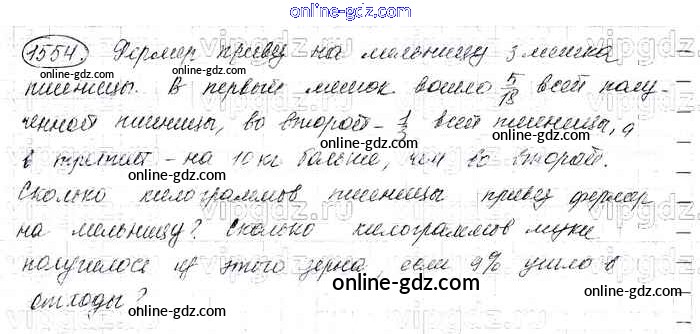 online-gdz.com
1554. Фермер привёз на мельницу 3 мешка
пшеницы. В первый мешок вошло 5/18 всей полу-
ченной пшеницы, во второй - 1/3 всей пшеницы, а
в третий - на 10 кг больше, чем во второй.
Сколько килограммов пшеницы привёз фермер
на мельницу? Сколько килограммов муки
получилось из этого зерна, если 9% ушло в
отходы?
online-gdz.com
online-gdz.com
online-gdz.com
online-gdz.com
online-gdz.com
online-gdz.com
online-gdz.com
online-gdz.com